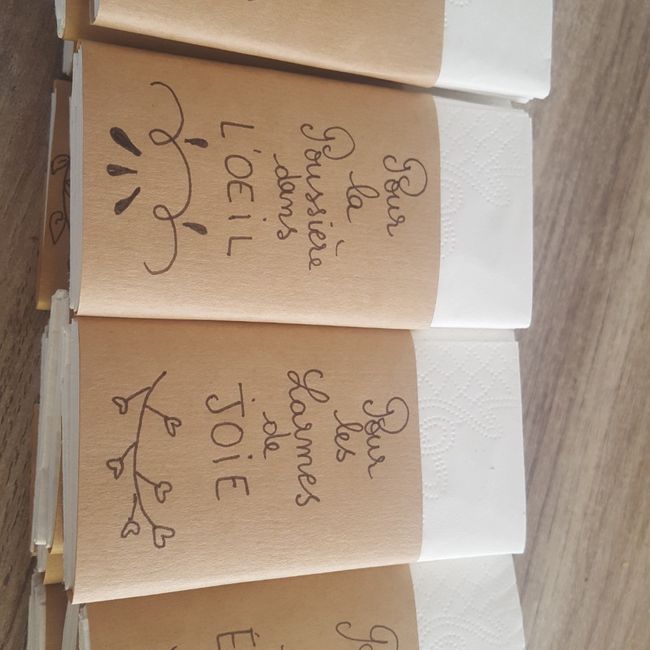 Pour
la
Poussière
dans
L'OEIL
Pour
les
Larmes
de
JOIE
Pour